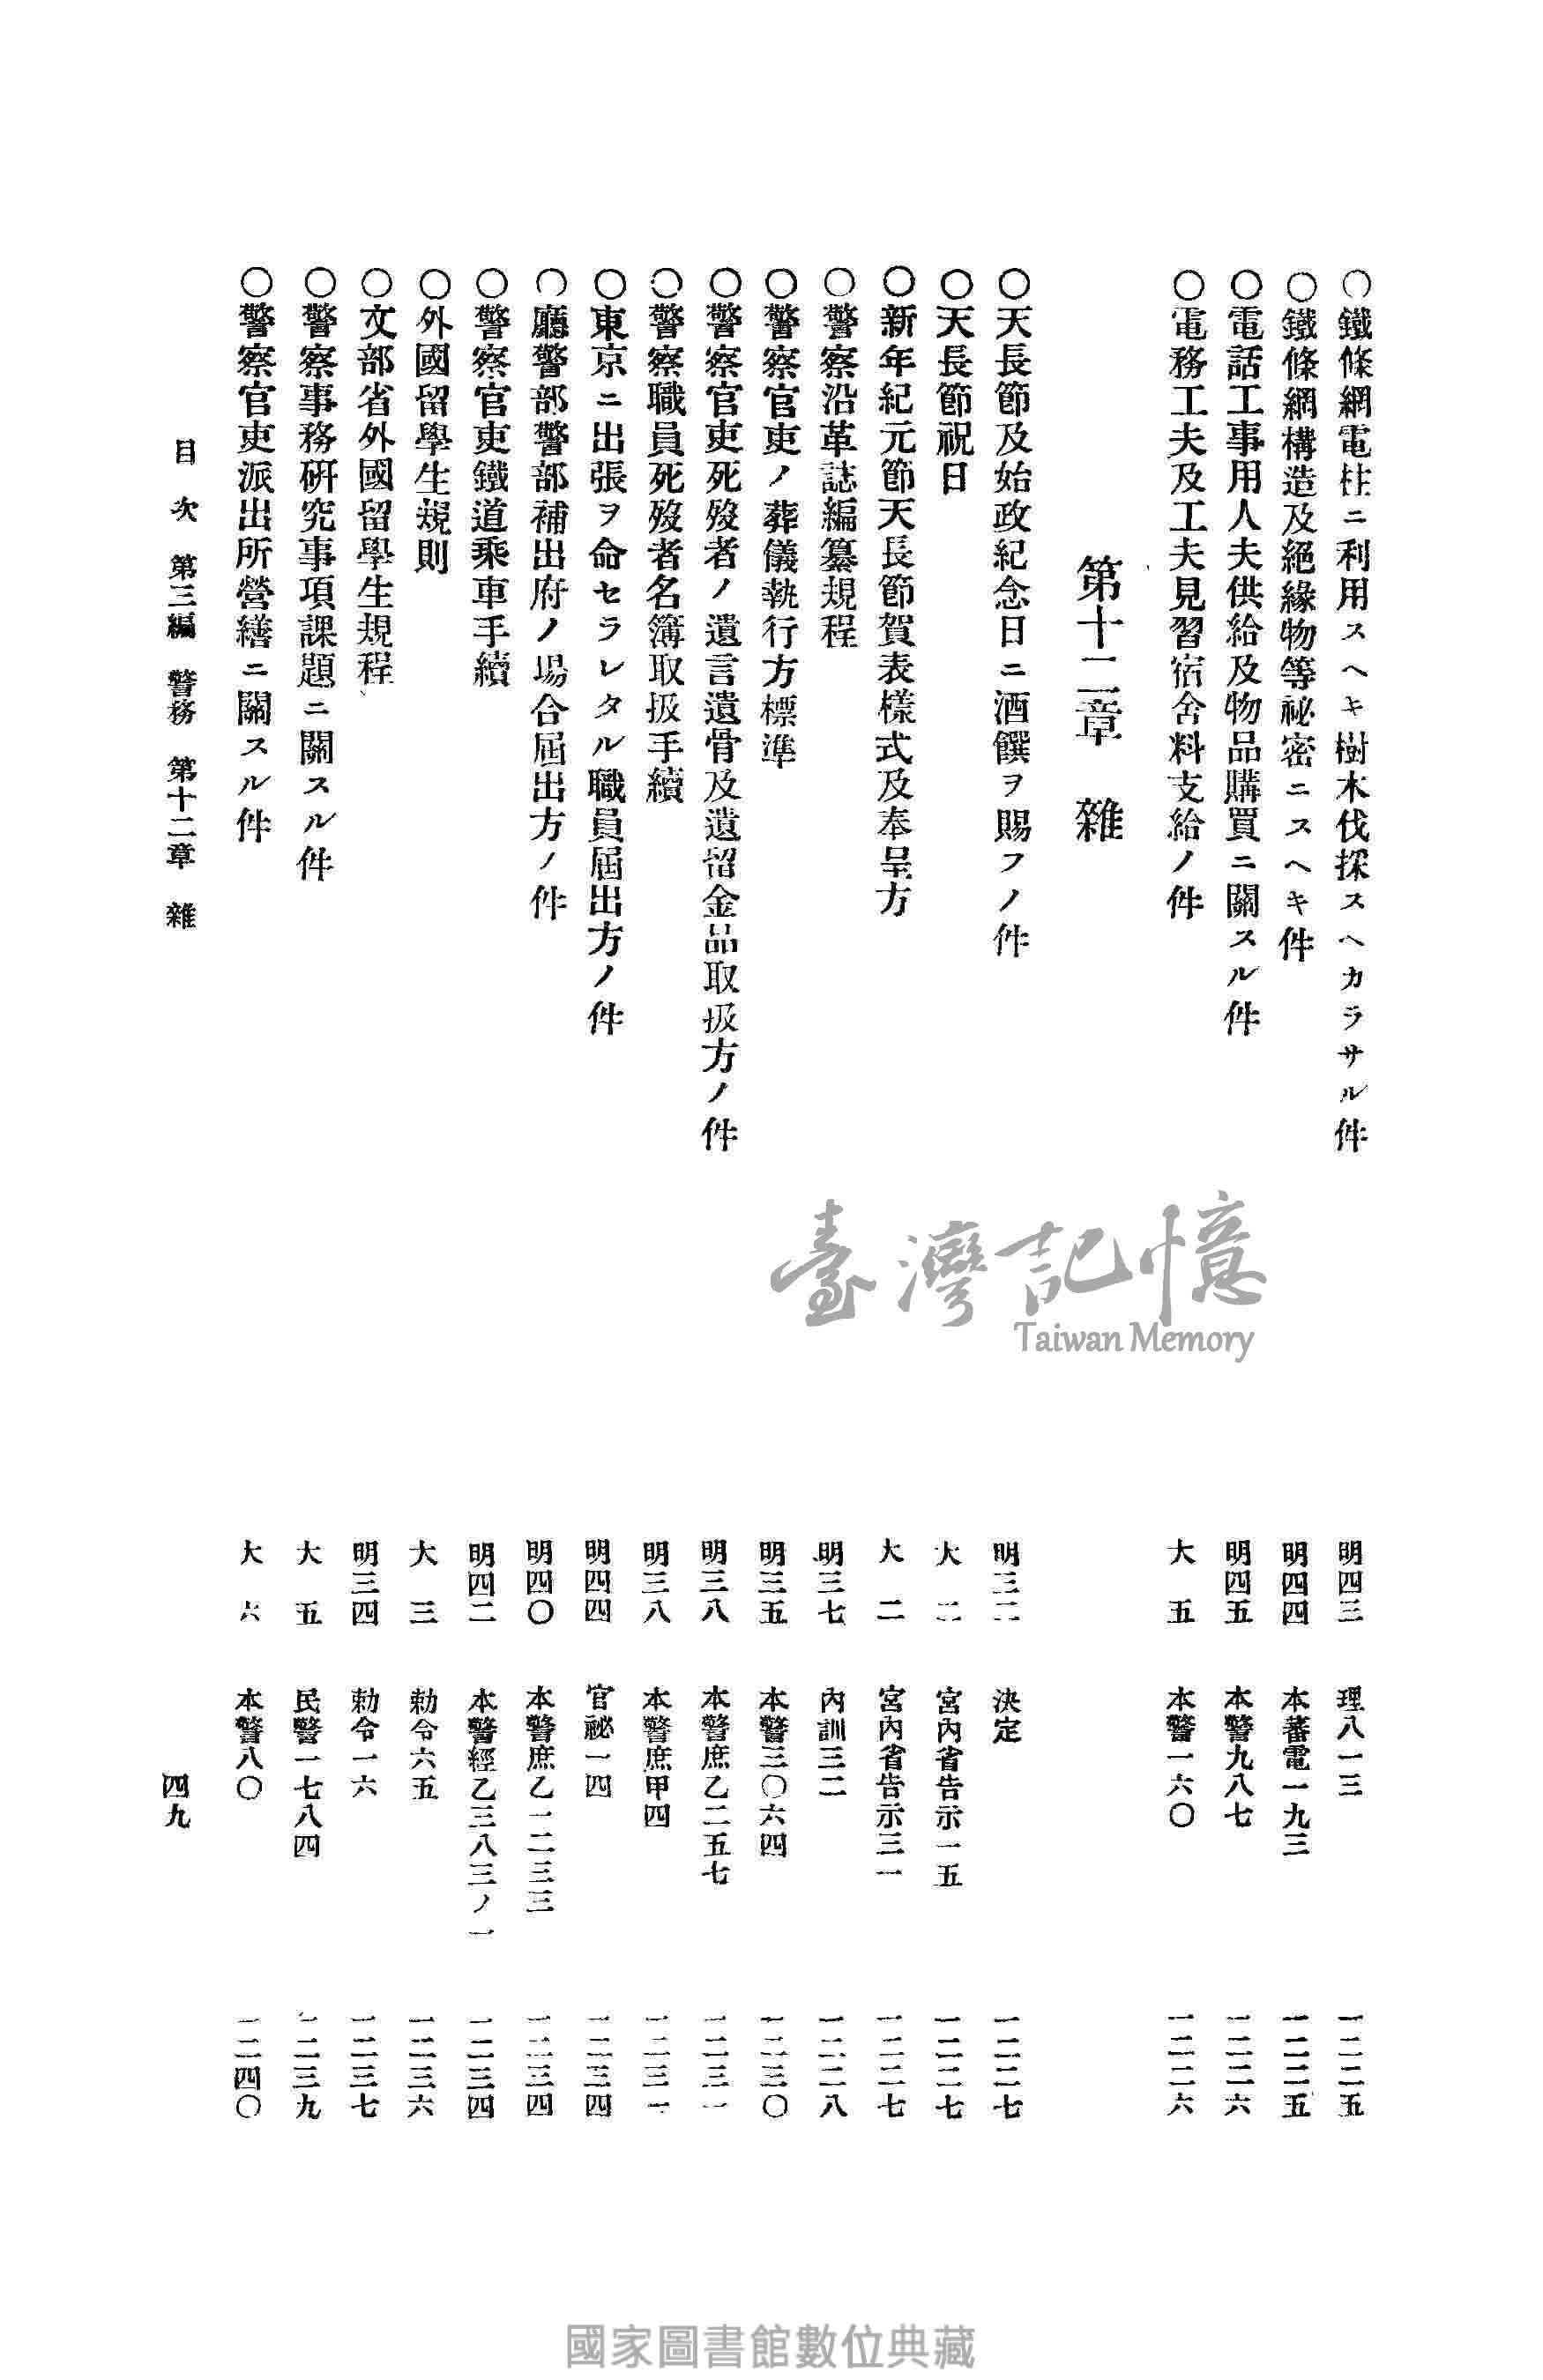 〇鐵條網電柱ニ利用スヘキ樹木伐採スヘカラサル件 明四三 理八一三 一二二五
〇鐵條網構造及絕緣物等祕密ニスヘキ件 明四四 本蕃電一九三 一二二五
〇電話工事用人夫供給及物品購買ニ關スル件 明四五 本警九八七 一二二六
〇電務工夫及工夫見習宿舍料支給ノ件 大五 本警一六〇 一二二六
第十二章 雜
〇天長節及始政紀念日ニ酒饌ヲ賜フノ件 明三二 決定 一二二七
〇天長節祝日 大二 宮內省告示一五 一二二七
〇新年紀元節天長節賀表樣式及奉呈方 大二 宮內省告示三一 一二二七
〇警察沿革誌編纂規程 明三七 內訓三二 一二二八
〇警察官吏ノ葬儀執行方標準 明三五 本警三〇六四 一二三〇
〇警察官吏死歿者ノ遺言遺骨及遺留金品取扱方ノ件 明三八 本警庶乙二五七 一二三一
〇警察職員死歿者名簿取扱手續 明三八 本警庶甲四 一二三一
〇東京ニ出張ヲ命セラレタル職員屆出方ノ件 明四四 官祕一四 一二三四
〇廳警部警部補出府ノ場合屆出方ノ件 明四〇 本警庶乙一二三三 一二三四
〇警察官吏鐵道乘車手續 明四二 本警經乙三八三ノ一 一二三四
〇外國留學生規則 大三 勅令六五 一二三六
〇文部省外國留學生規程 明三四 勅令一六 一二三七
〇警察事務研究事項課題ニ關スル件 大五 民警一七八四 一二三九
〇警察官吏派出所營繕ニ關スル件 大六 本警八〇 一二四〇
目次 第三編 警務 第十二章 雜 四九
臺灣記憶
Taiwan Memory
國家圖書館數位典藏